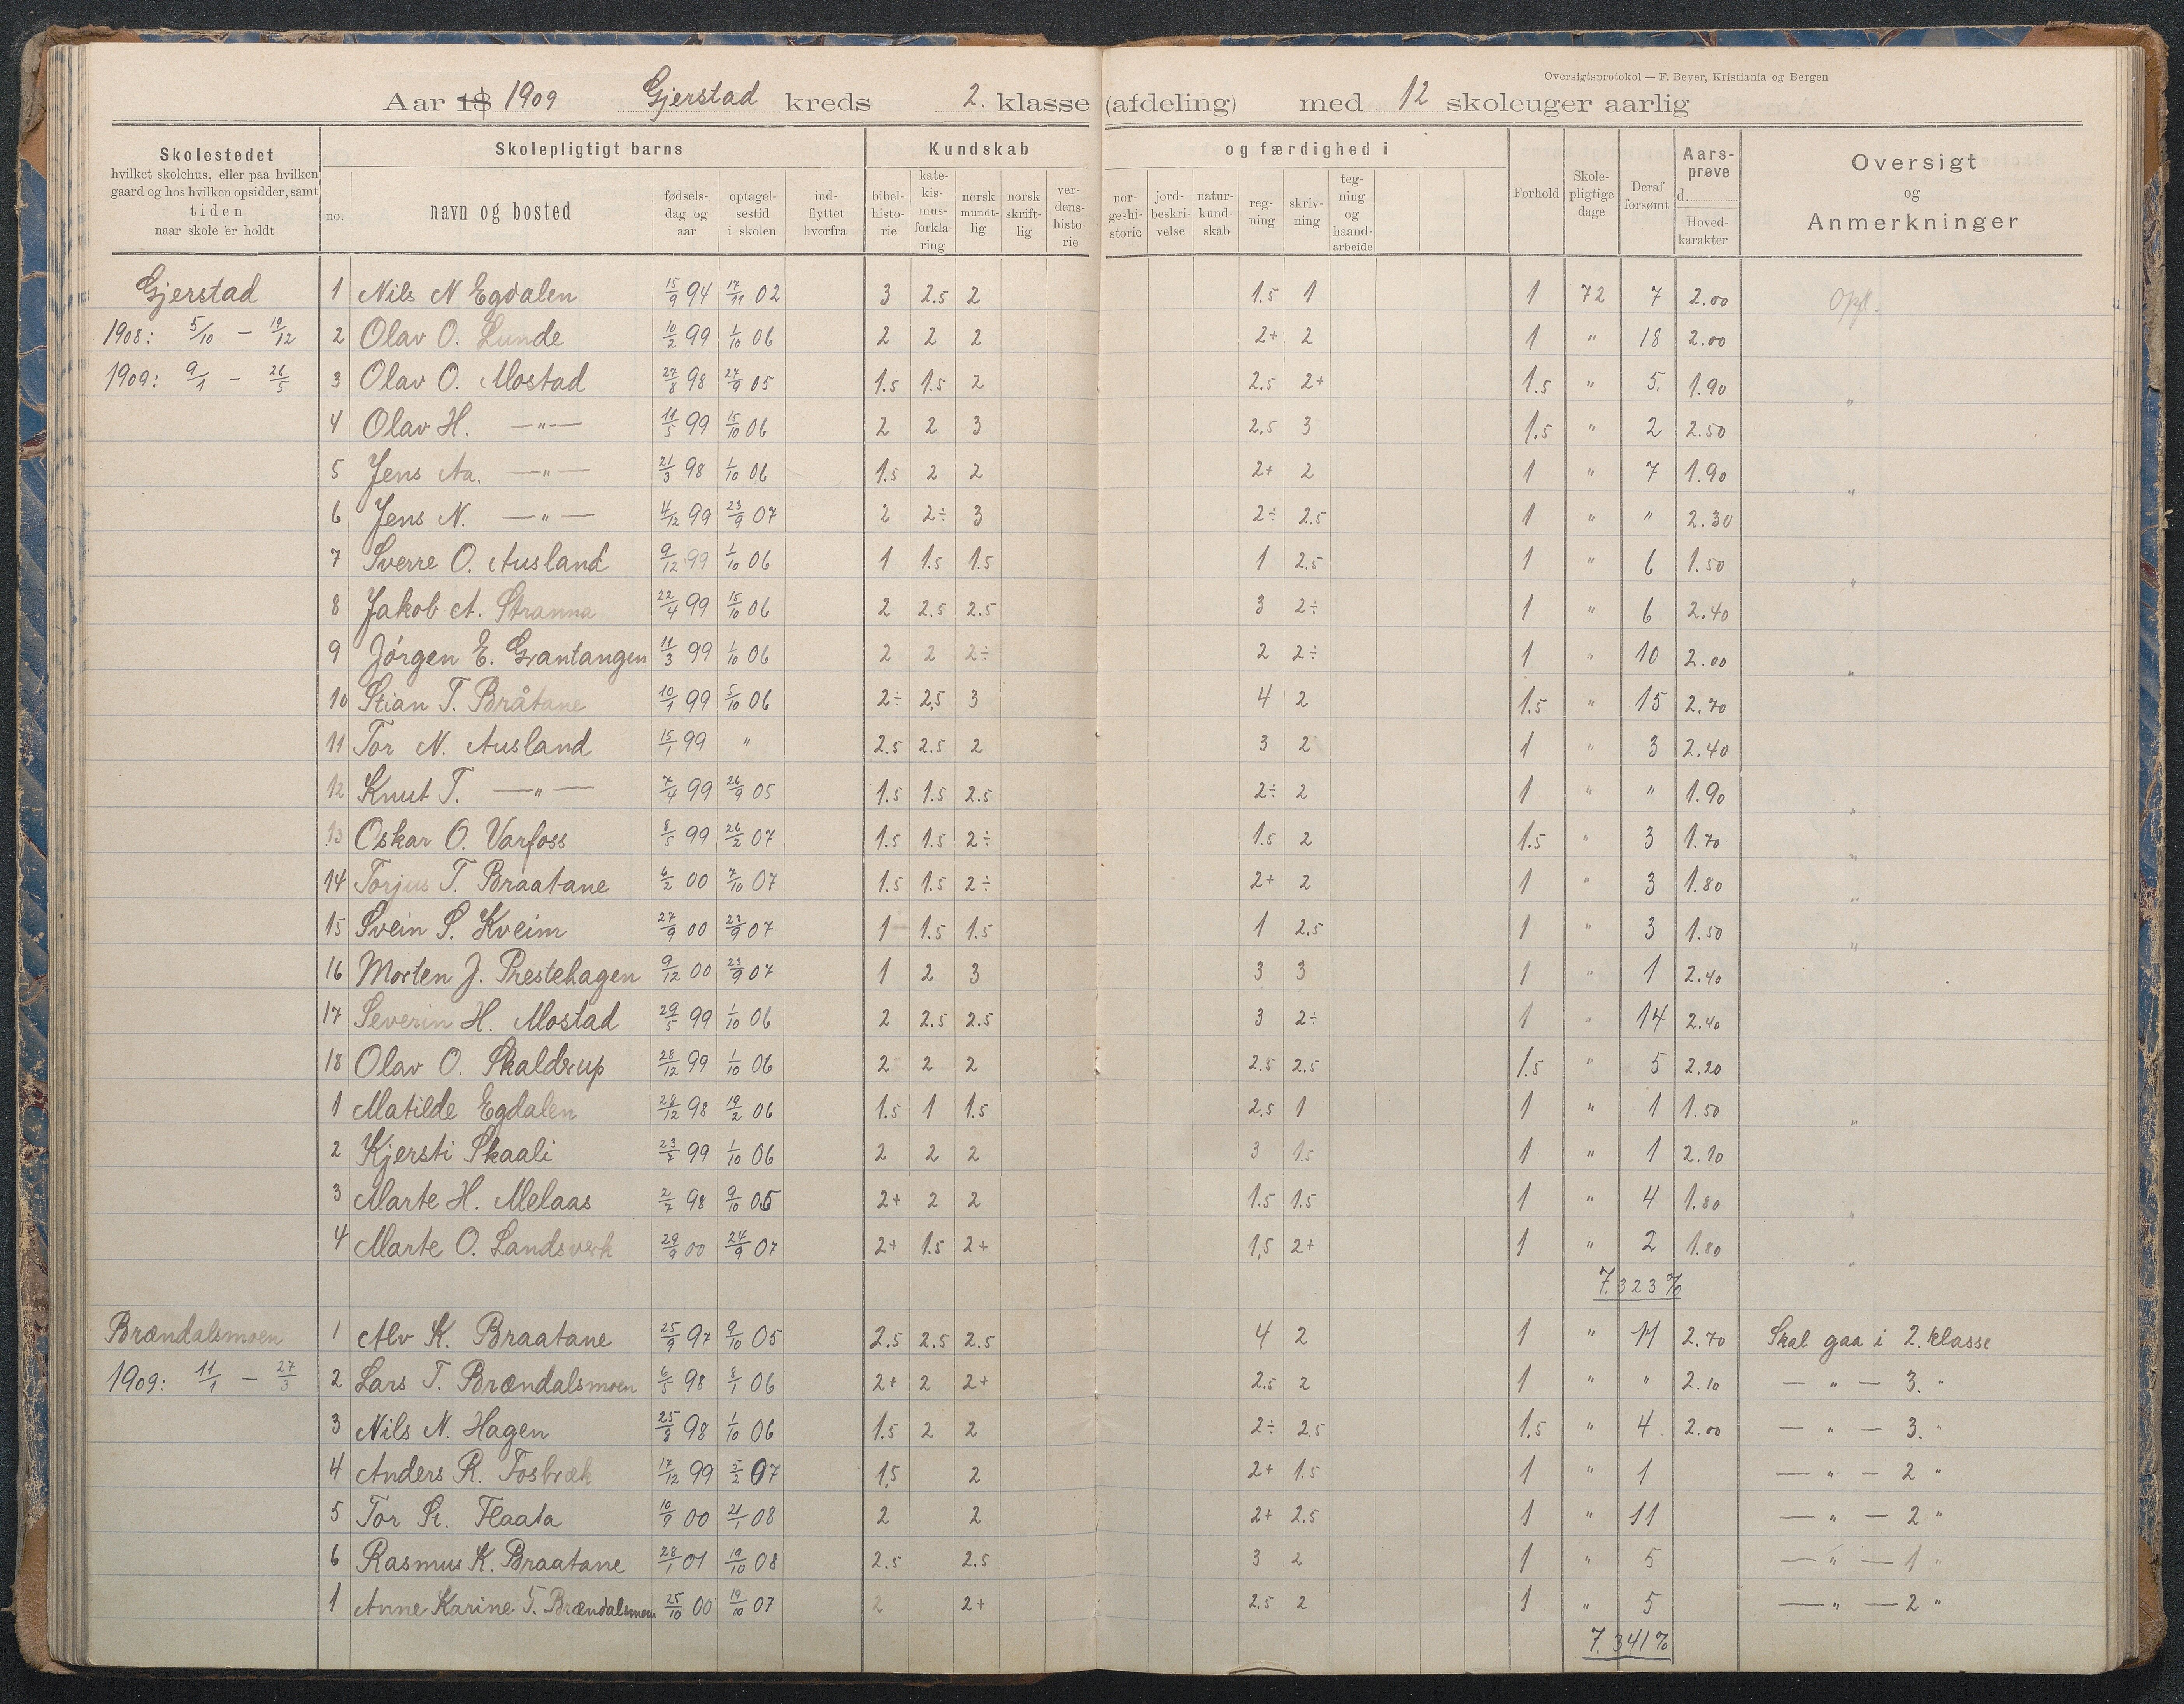 Oversigtsprotokol — F. Beyer, Kristiania og Bergen
Aar 18 1909 Gjerstad kreds 2. klasse (afdeling) med 12 skoleuger aarlig
Skolestedet hvilket skolehus, eller paa hvilken gaard og hos hvilken opsidder, samt tiden naar skole er holdt
Skolepligtigt barns
Kundskab og færdighed i
no. navn og bosted fødselsdag og aar optagelsestid i skolen indflyttet hvorfra bibelhistorie katekismusforklaring norsk mundtlig norsk skriftlig verdenshistorie norgeshistorie jordbeskrivelse naturkundskab regning skrivning tegning og haandarbeide Forhold Skolepligtige dage Deraf forsømt Aarsprøve d. Hovedkarakter Oversigt og Anmerkninger
Gjerstad 1 Nils N Egdalen 15/9 94 17/11 02 3 2.5 2 1.5 1 1 72 7 2.00 Opfl.
1908: 5/10 — 19/12 2 Olav O. Lunde 10/2 99 1/10 06 2 2 2 2+ 2 1 " 18 2.00
1909: 9/1 - 26/5 3 Olav O. Mostad 27/8 98 27/9 05 1.5 1.5 2 2.5 2+ 1.5 " 5 1.90 "
4 Olav H. —"— 11/5 99 15/10 06 2 2 3 2.5 3 1.5 " 2 2.50
5 Jens Aa. —"— 21/3 98 1/10 06 1.5 2 2 2+ 2 1 " 7 1.90 "
6 Jens N. —"— 4/12 99 23/9 07 2 2÷ 3 2÷ 2.5 1 " " 2.30
7 Sverre O. Ausland 9/12 99 1/10 06 1 1.5 1.5 1 2.5 1 " 6 1.50 "
8 Jakob A. Stranna 22/4 99 15/10 06 2 2.5 2.5 3 2÷ 1 " 6 2.40
9 Jórgen E. Grantangen 11/3 99 1/10 06 2 2 2÷ 2 2÷ 1 " 10 2.00 "
10 Stian T. Bråtane 10/1 99 5/10 06 2÷ 2,5 3 4 2 1.5 " 15 2.70
11 Tor N. Ausland 15/1 99 " 2.5 2.5 2 3 2 1 " 3 2.40
12 Knut T. —"— 7/4 99 26/9 05 1.5 1.5 2.5 2÷ 2 1 " " 1.90 "
13 Oskar O. Varfoss 8/5 99 26/2 07 1.5 1.5 2÷ 1.5 2 1.5 " 3 1.70 "
14 Torjus T. Braatane 6/2 00 7/10 07 1.5 1.5 2÷ 2+ 2 1 " 3 1.80 "
15 Svein S. Kveim 27/9 00 23/9 07 1 1.5 1.5 1 2.5 1 " 3 1.50 "
16 Morten J. Prestehagen 9/12 00 23/9 07 1 2 3 3 3 1 " 1 2.40
17 Severin H. Mostad 29/5 99 1/10 06 2 2.5 2.5 3 2÷ 1 " 14 2.40
18 Olav O. Skaldrup 28/12 99 1/10 06 2 2 2 2.5 2.5 1.5 " 5 2.20
1 Matilde Egdalen 28/12 98 19/2 06 1.5 1 1.5 2,5 1 1 " 1 1.50 "
2 Kjersti Skaali 23/7 99 1/10 06 2 2 2 3 1.5 1 " 1 2.10
3 Marte H. Melaas 2/7 98 9/10 05 2+ 2 2 1.5 1.5 1 " 4 1.80 "
4 Marte O. Landsverk 29/9 00 24/9 07 2+ 1.5 2+ 1,5 2+ 1 " 2 1.80 "
7.323%
Brændalsmoen 1 Alv K. Braatane 25/9 97 9/10 05 2.5 2.5 2.5 4 2 1 " 11 2.70 Skal gaa i 2. klasse
1909: 11/1 — 27/3 2 Lars T. Brændalsmoen 6/5 98 8/1 06 2+ 2 2+ 2.5 2 1 " " 2.10 — " — 3. "
3 Nils N. Hagen 25/8 98 1/10 06 1.5 2 2 2÷ 2.5 1.5 " 4 2.00 — " — 3. "
4 Anders R. Fosbræk 17/12 99 5/2 07 1,5 2 2+ 1.5 1 " 1 — " — 2 "
5 Tor St. Flaata 10/9 00 21/1 08 2 2 2+ 2.5 1 " 11 — " — 2 "
6 Rasmus K. Braatane 28/1 01 19/10 08 2.5 2.5 3 2 1 " 5 — " — 1 "
1 Anne Karine T. Brændalsmoen 25/10 00 19/10 07 2 2+ 2.5 2 1 " 5 — " — 2 "
7.341%